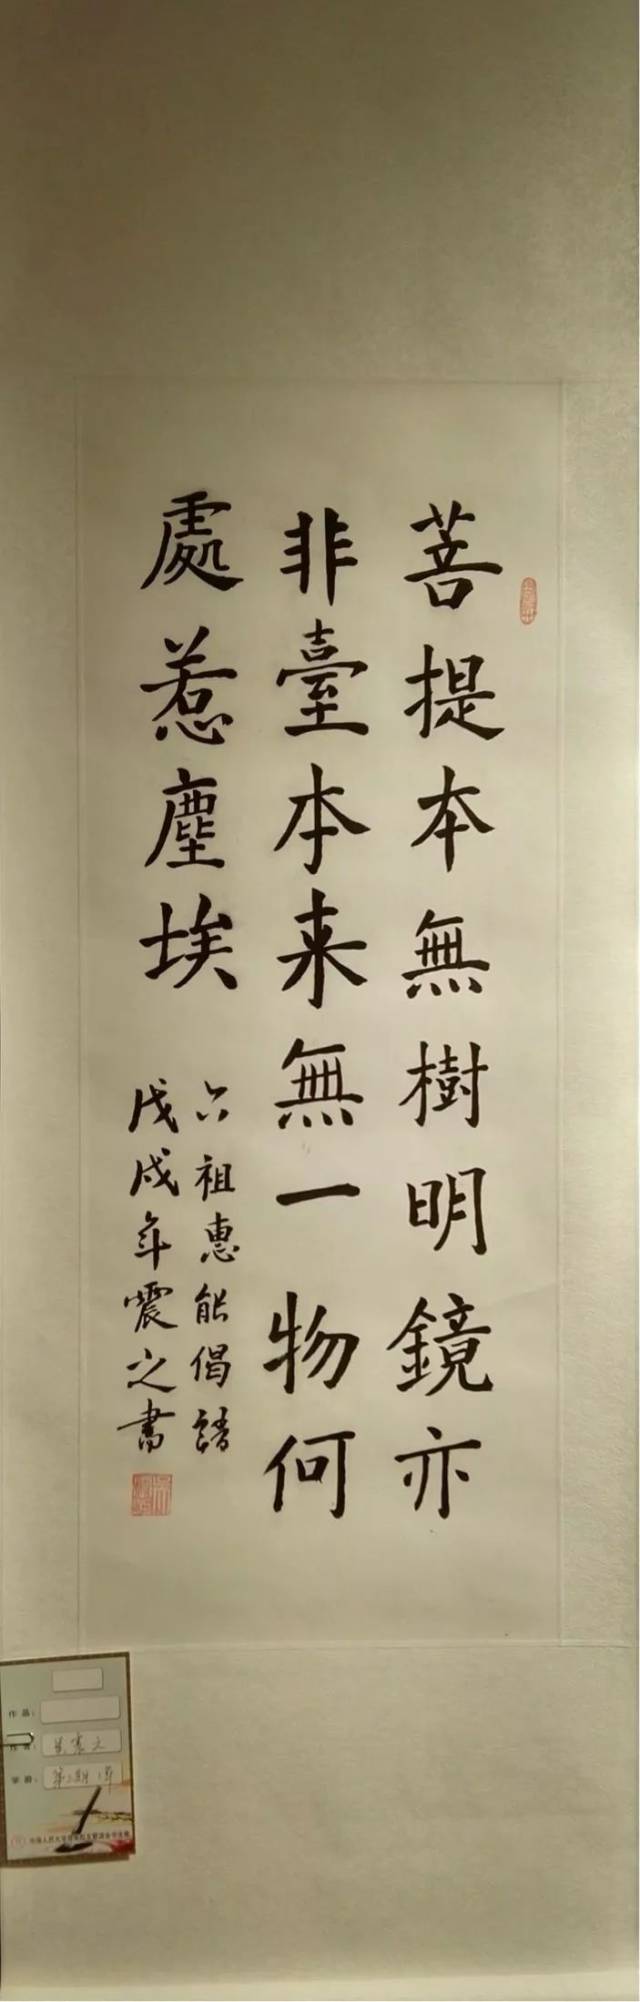 菩提本無樹明鏡亦
非臺本来無一物何
處惹塵埃
六祖惠能偈語
戊戌年震之書
作品：
作者：
学游：